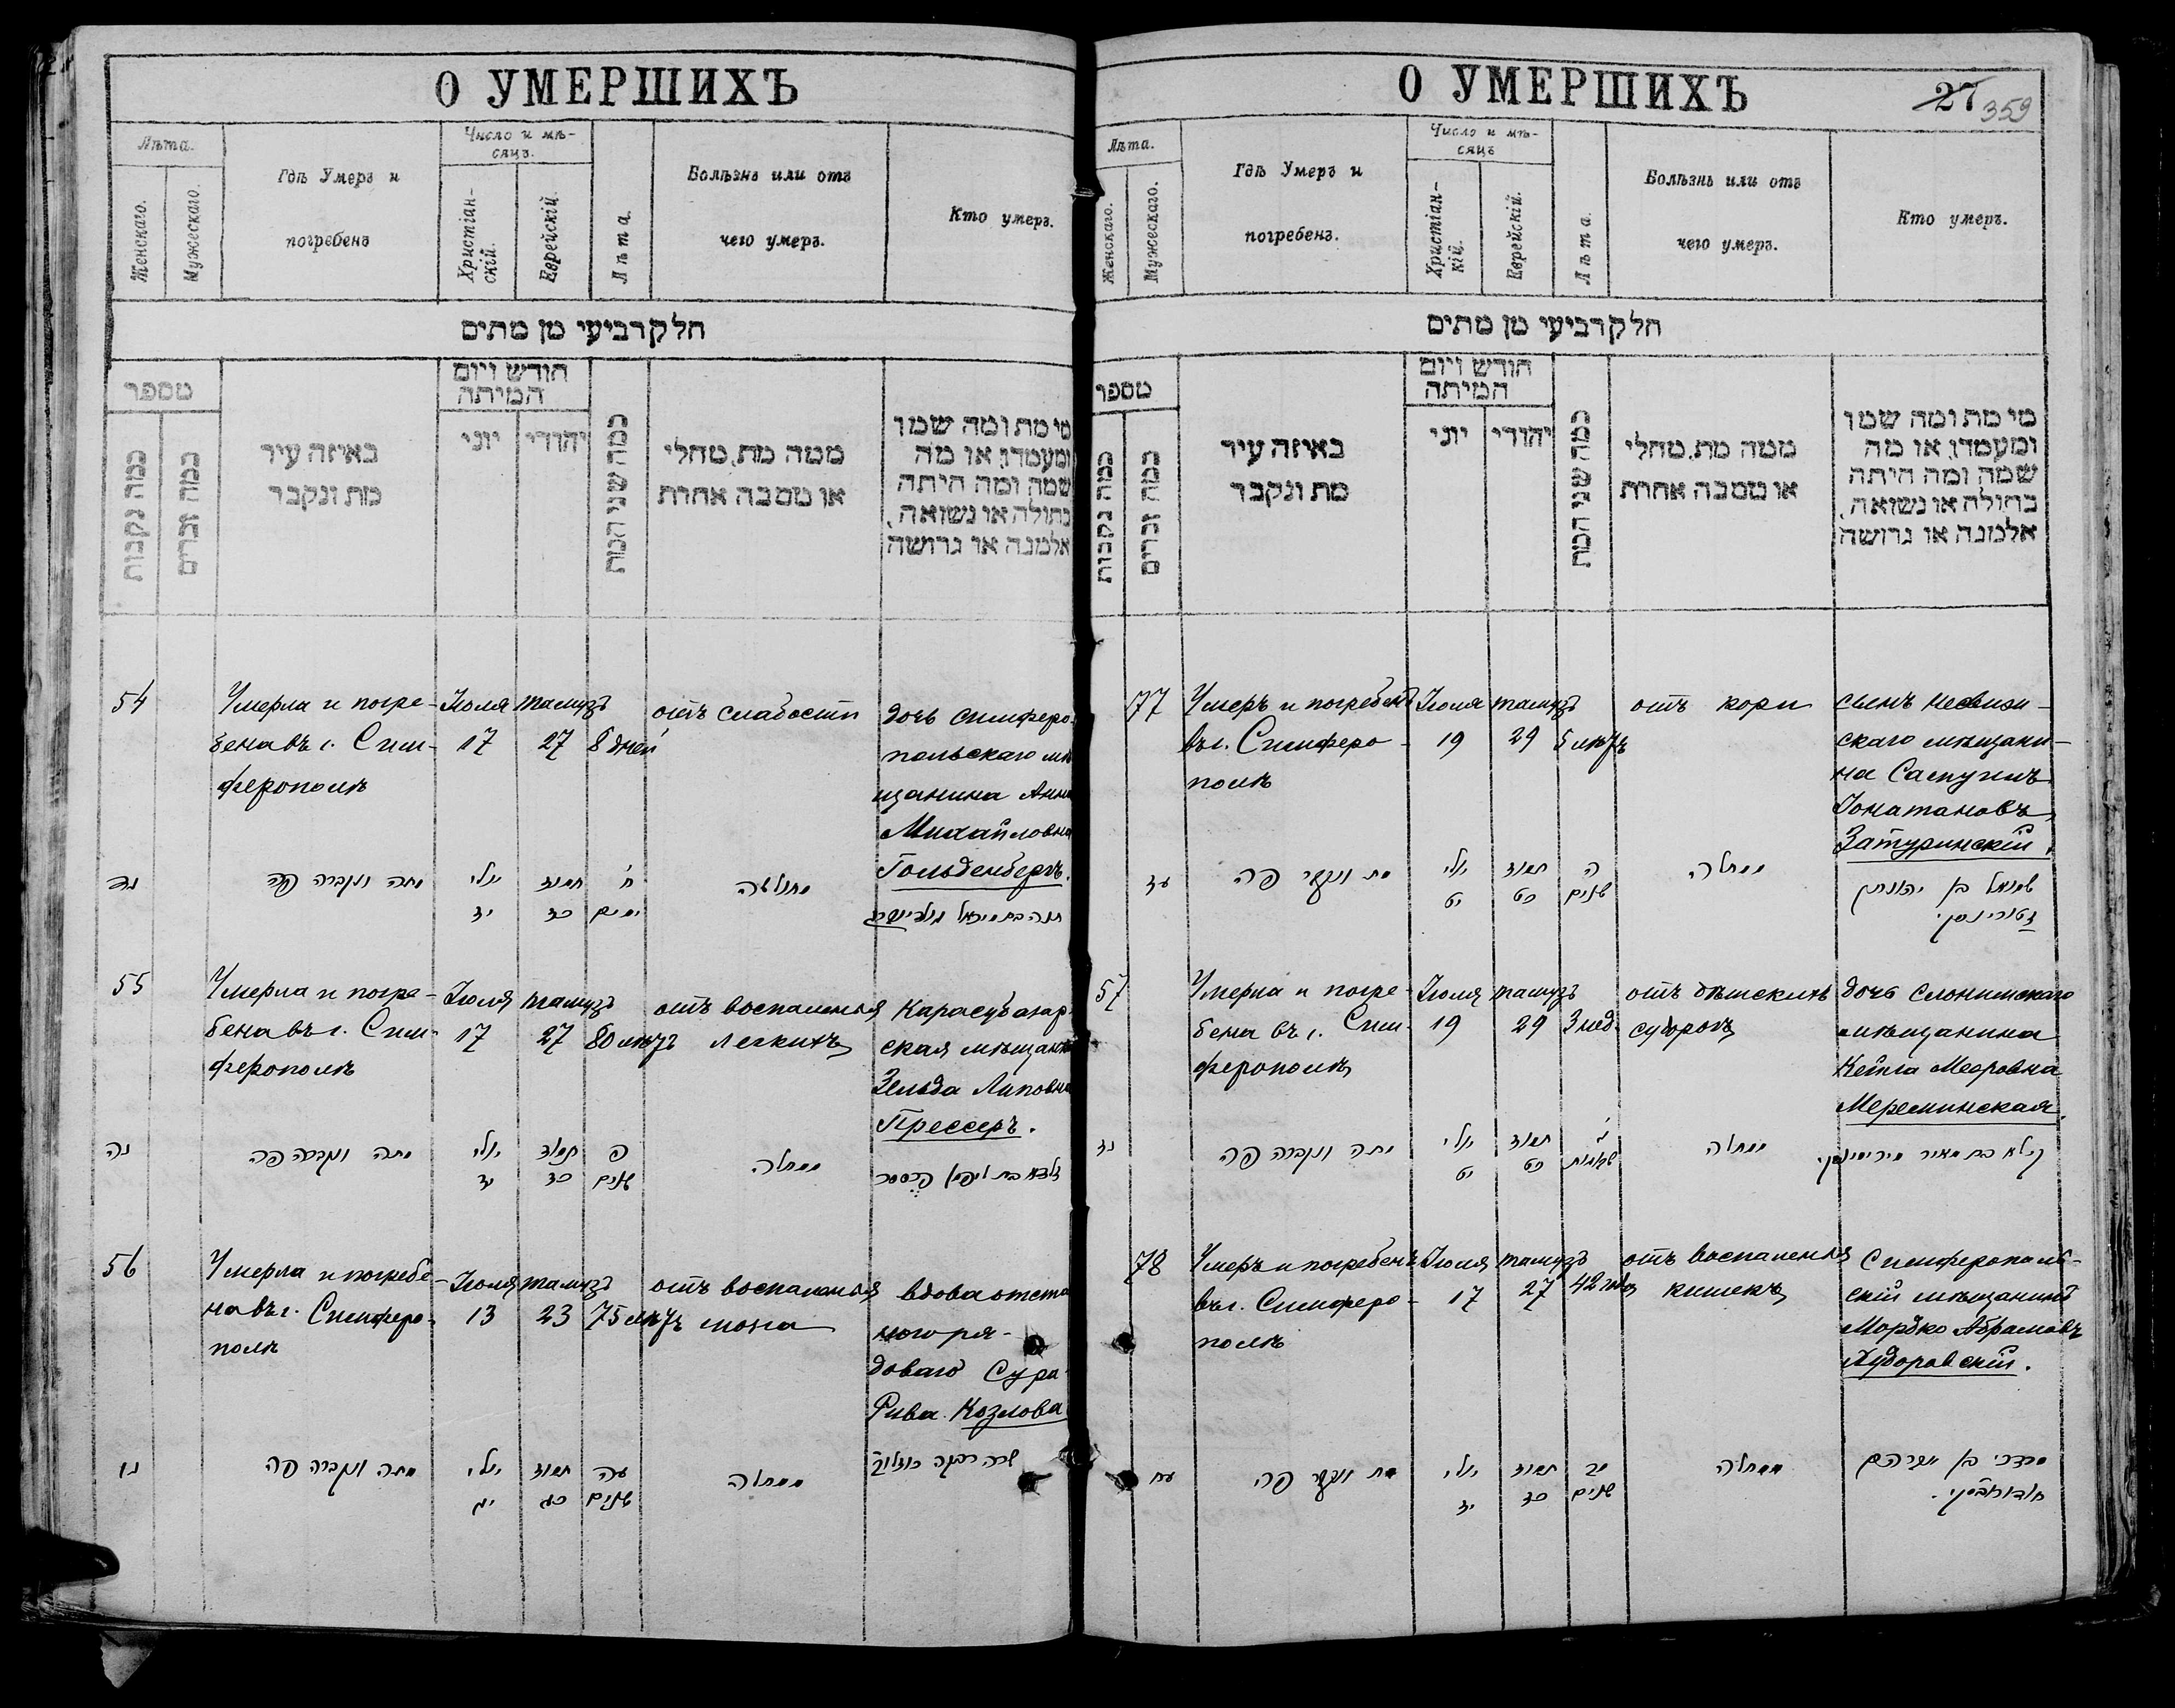 О УМЕРШИХЪ
Лѣта.
Женскаго.
Мужескаго.
Гдѣ Умеръ и
погребенъ
Число и мѣ-
сяцъ.
Христіан-
скій.
Еврейскій.
Лѣта.
Болѣзнь или отъ
чего умеръ.
Кто умеръ.
חלק רביעי מן מתים
מספר
כמה נקבות
כמה זכרים
באיזה עיר
מת ונקבר
חודש ויום
המיתה
יוני
יהודי
כמה שני המת
ממה מת, מחלי
או מסבה אחרת
מי מת ומה שמו
ומעמדו, או מה
שמה ומה היתה
בתולה או נשואה,
אלמנה או גרושה
54
Умерла и погре-
бена въ г. Сим-
ферополѣ
Іюля
17
тамузъ
27
8 дней
отъ слабости
дочь симферо-
польскаго мѣ
щанина Анна
Михайловна
Гольденбергъ.
נד
מתה ונקברה פה
יולי
יז
תמוז
כז
ח
ימים
מחולשה
חנה בת מיכאל
55
Умерла и погре-
бена въ г. Сим-
ферополѣ
Іюля
17
тамузъ
27
80 лѣтъ
отъ воспаленія
легкихъ
Карасубазар-
ская мѣщанка
Зельда Липовна
Прессеръ.
נה
מתה ונקברה פה
יולי
יז
תמוז
כז
פ
שנים
ממחלה
זלדא בת ליפמן פרעסער
56
Умерла и погребе-
на въ г. Симферо-
полѣ
Іюля
13
тамузъ
23
75 лѣтъ
отъ воспаленія
мозга
вдова отста
ного ря-
доваго Сура-
Рива Козлова
נו
מתה ונקברה פה
יולי
יג
תמוז
כג
עה
שנים
ממחלה
שרה רבקה כוזלוב
О УМЕРШИХЪ
27
359
Лѣта.
Женскаго.
Мужескаго.
Гдѣ Умеръ и
погребенъ.
Число и мѣ-
сяцъ
Христіан-
кій.
Еврейскій.
Лѣта.
Болѣзнь или отъ
чего умеръ.
Кто умеръ.
חלק רביעי מן מתים
מספר
כמה נקבות
כמה זכרים
באיזה עיר
מת ונקבר
חודש ויום
המיתה
יוני
יהודי
כמה שני המת
ממה מת, מחלי
או מסבה אחרת
מי מת ומה שמו
ומעמדו, או מה
שמה ומה היתה
בתולה או נשואה,
אלמנה או גרושה
77
Умеръ и погребенъ
въ г. Симферо-
полѣ
Іюля
19
тамузъ
29
5 лѣтъ
отъ кори
сынъ несвиж-
скаго мѣщани-
на Самуилъ
Іонатановъ
Затуринскій.
עז
מת ונקבר פה
יולי
יט
תמוז
כט
ה
שנים
ממחלה
שמואל בן יהונתן
זטורינסקי.
57
Умерла и погре-
бена въ г. Сим-
ферополѣ
Іюля
19
тамузъ
29
3 нед.
отъ дѣтскихъ
судорогъ
дочь слонимскаго
мѣщанина
Кейла Мееровна
Мереминская.
נז
מתה ונקברה פה
יולי
יט
תמוז
כט
ג
שבועות
ממחלה
קילא בת מאיר מירימינסקי.
78
Умеръ и погребенъ
въ г. Симферо-
полѣ
Іюля
17
тамузъ
27
42 года
отъ воспаленія
кишекъ
Симферополь-
скій мѣщанинъ
Мордко Абрамовъ
Худоровскій.
עח
מת ונקבר פה
יולי
יז
תמוז
כז
מב
שנים
ממחלה
מרדכי בן אברהם
חודורובסקי.